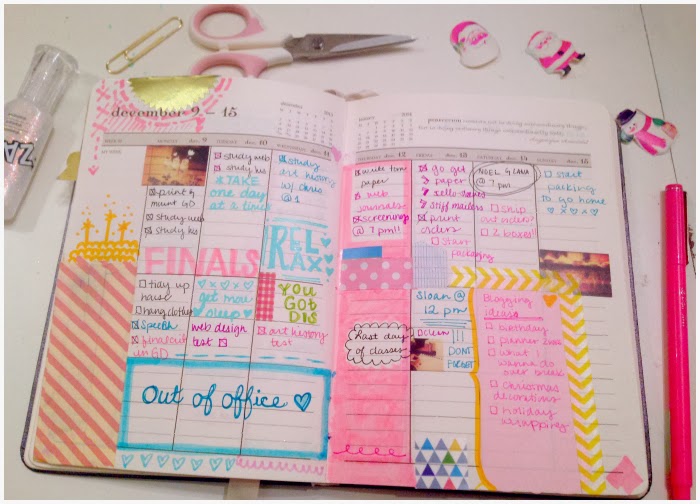 december 9 – 15
MONDAY dec. 9
print & mount GD
study web
study his
FINALS
tidy up
house
hang clothes
Speech
final cut
in GD
TUESDAY dec. 10
study web
study his
TAKE
one day
at a time
♡ x ♡ x ♡
get more
sleep
web design
test
dec. 11
study
art history
w/ Chris
@ 1
RELAX
YOU
GOT
DIS
art history
test
Out of office ♡
THURSDAY dec. 12
write
paper
web
journals
screening
@ 7 pm!!
Last day
of classes
FRIDAY dec. 13
go get
paper
stuff mailers
print
orders
start
packaging
Sloan @
12 pm
CLEAN!!!
DONT
FORGET
dec. 14
NOEL @ LANA
@ 7 pm
ship
out orders
2 boxes!!
Blogging
ideas
birthday
planner
what I
wanna do
over break
Christmas
decorations
holiday
wrapping
dec. 15
start
packing
to go home
♡ x ♡ x ♡